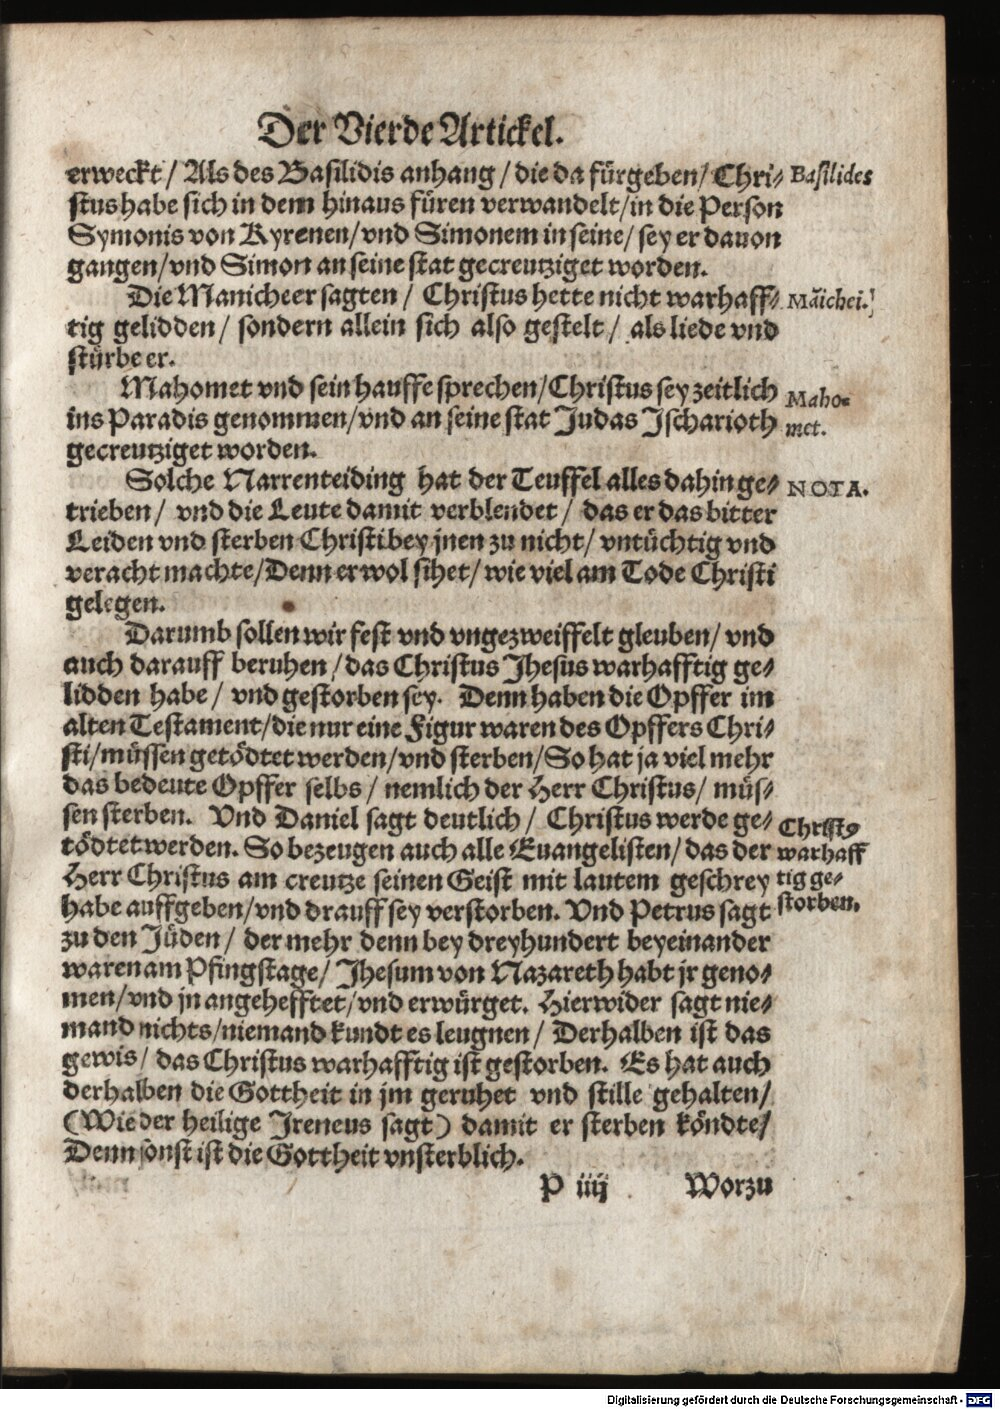 Der Vierde Artickel.
erweckt / Als des Basilidis anhang / die da fürgeben / Chri-
Basilides
stus habe sich in dem hinaus füren verwandelt / in die Person
Symonis von Kyrenen / vnd Simonem in seine / sey er dauon
gangen / vnd Simon an seine stat gecreutziget worden.
Die Manicheer sagten / Christus hette nicht warhaff-
Mãichei.
tig gelidden / sondern allein sich also gestelt / als liede vnd
stürbe er.
Mahomet vnd sein hauffe sprechen / Christus sey zeitlich
Maho-
ins Paradis genommen / vnd an seine stat Judas Jscharioth
met.
gecreutziget worden.
Solche Narrenteiding hat der Teuffel alles dahin ge-
NOTA.
trieben / vnd die Leute damit verblendet / das er das bitter
Leiden vnd sterben Christi bey jnen zu nicht / vntüchtig vnd
veracht machte / Denn er wol sihet / wie viel am Tode Christi
gelegen.
Darumb sollen wir fest vnd vngezweiffelt gleuben / vnd
auch darauff beruhen / das Christus Jhesus warhafftig ge-
lidden habe / vnd gestorben sey. Denn haben die Opffer im
alten Testament / die nur eine Figur waren des Opffers Chri-
sti / müssen getödtet werden / vnd sterben / So hat ja viel mehr
das bedeute Opffer selbs / nemlich der Herr Christus / müs-
sen sterben. Vnd Daniel sagt deutlich / Christus werde ge-
Christꝰ
tödtet werden. So bezeugen auch alle Euangelisten / das der
warhaff
Herr Christus am creutze seinen Geist mit lautem geschrey
tig ge-
habe auffgeben / vnd drauff sey verstorben. Vnd Petrus sagt
storben.
zu den Jüden / der mehr denn bey dreyhundert beyeinander
waren am Pfingstage / Jhesum von Nazareth habt jr geno-
men / vnd jn angehefftet / vnd erwürget. Hierwider sagt nie-
mand nichts / niemand kundt es leugnen / Derhalben ist das
gewis / das Christus warhafftig ist gestorben. Es hat auch
derhalben die Gottheit in jm geruhet vnd stille gehalten /
(Wie der heilige Jreneus sagt) damit er sterben köndte /
Denn sonst ist die Gottheit vnsterblich.
P iiij Worzu
Digitalisierung gefördert durch die Deutsche Forschungsgemeinschaft - DFG